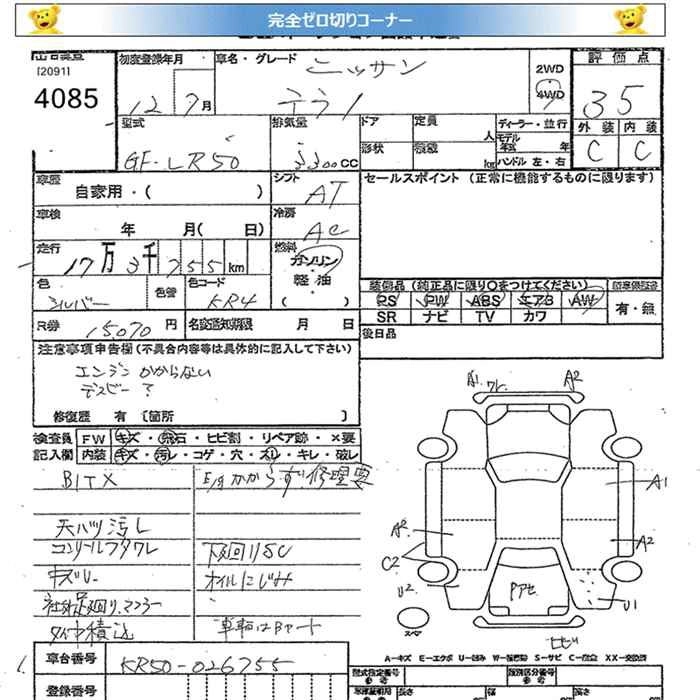 完全ゼロ切りコーナー
[2091]
4085
初度登録年月
12 7月
車名・グレード
ニッサン
テラノ
2WD
4WD
評価点
3.5
外装 内装
C C
型式
GF-LR50
排気量
3300cc
ドア 定員
人
形状
kg
ディーラー・並行
モデル
年式 年
ハンドル 左・右
車歴
自家用・( )
シフト
AT
車検
年 月( 日)
冷房
AC
走行
17万3千755km
燃料
ガソリン
軽油
( )
色
シルバー
色替
色コード
KR4
R券
15,070円
名変期限
月 日
セールスポイント (正常に機能するものに限ります)
装備品 (純正品に限り○をつけてください)
PS PW ABS エアB AW
SR ナビ TV カワ
有・無
後日品
注意事項申告欄(不具合内容等は具体的に記入して下さい)
エンジンかからない
デスビー?
修復歴 有 〔箇所 〕
検査員 FW キズ・飛石・ヒビ割・リペア跡・×要
記入欄 内装 キズ・汚レ・コゲ・穴・スレ・キレ・破レ
BITX
E/gかからず.修理要
天バリ汚レ
コンソールフタワレ
下廻りSC
キズレ
オイルにじみ
タイヤ積込
車台番号
KR50-026755
登録番号
A1 ワレ A2
A1
A2
A2
C2
U2
U1
Pアセ
スペア
ヒビ
A-キズ E-エクボ U-凹み S-サビ C-腐食 XX-交換済
型式指定番号
類別区分番号
参考
参考
長さ
幅
高さ